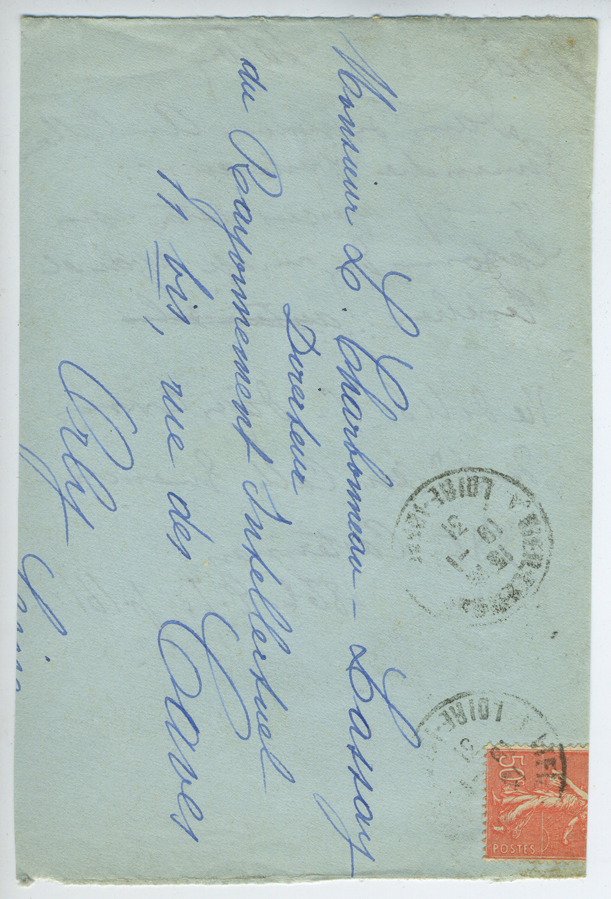 Monsieur L. Charbonneau-Lassay
Directeur
du Rayonnement Intellectuel
11 bis, rue des Caves
Orly
LOIRE
LOIRE
50
POSTES